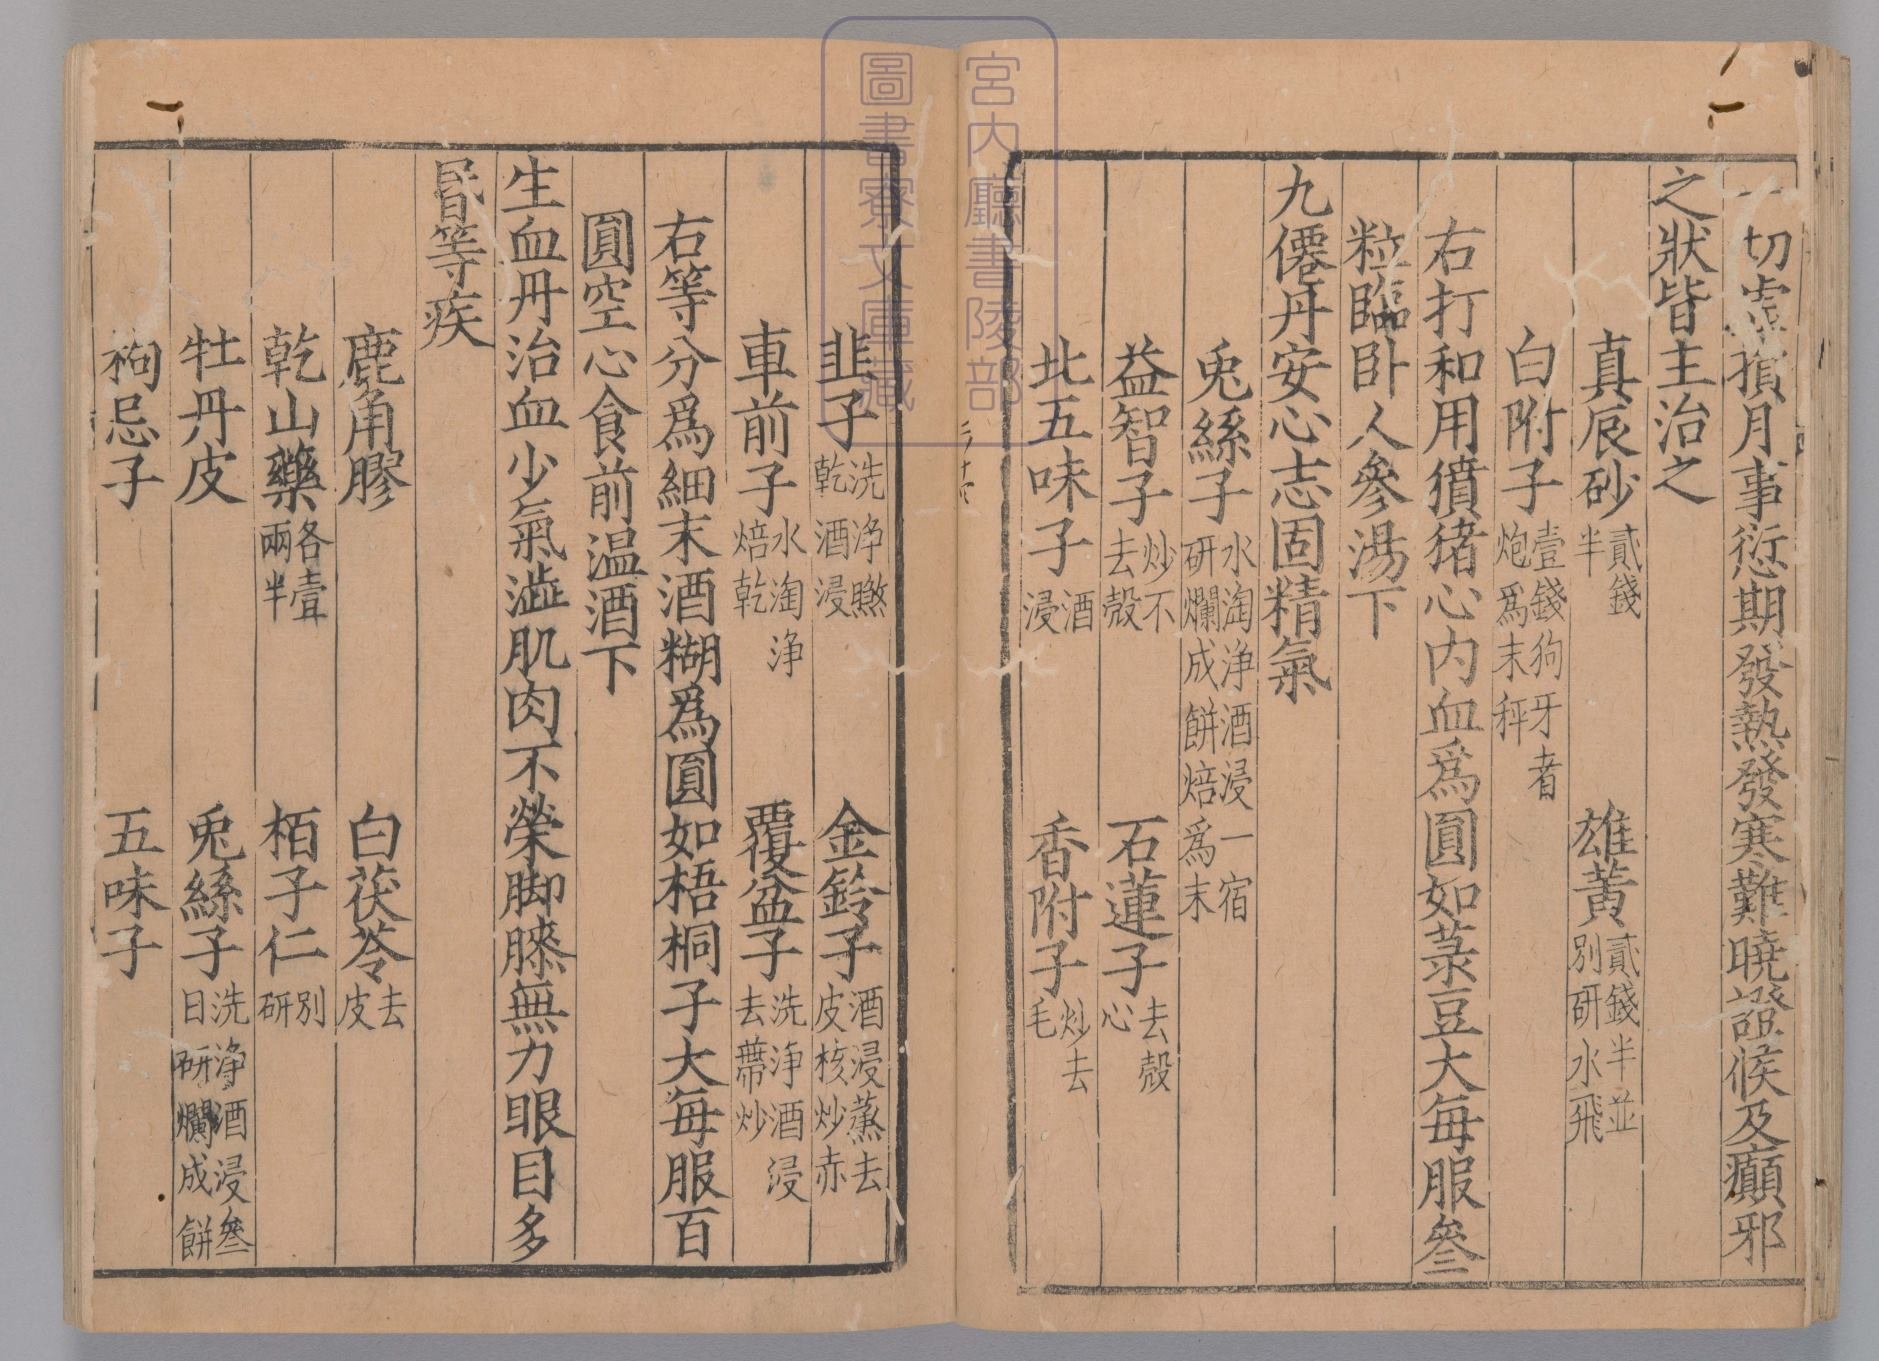 一切虛損月事愆期發熱發寒難曉證候及癲邪
之狀皆主治之
真辰砂貳錢半 雄黃貳錢半並別研水飛
白附子壹錢狗牙者炮爲末秤
右打和用獖猪心内血爲圓如菉豆大每服叄
粒臨卧人參湯下
九僊丹安心志固精氣
兎絲子水淘浄酒浸一宿研爛成餅焙爲末
益智子炒不去殼 石蓮子去殼心
北五味子酒浸 香附子炒去毛
韭子洗浄㬠乾酒浸 金鈴子酒浸蒸去皮核炒赤
車前子水淘浄焙乾 覆盆子洗浄酒浸去蔕炒
右等分爲細末酒糊爲圓如梧桐子大每服百
圓空心食前温酒下
生血丹治血少氣澁肌肉不榮脚膝無力眼目多
昬等疾
鹿角膠 白茯苓去皮
乾山藥各壹兩半 栢子仁別研
牡丹皮 兎絲子洗浄酒浸叄日研爛成餅
枸忌子 五味子
宮内廳書陵部
圖書寮文庫藏